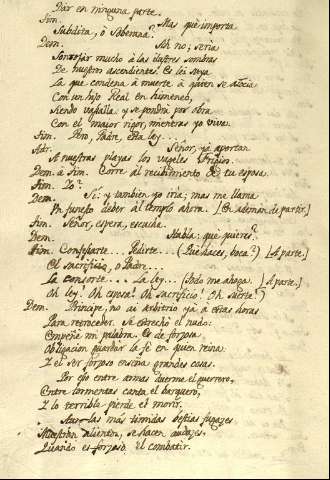 Dar en ninguna parte.
Tim. Mas què importa
Subdita, ò Soberana?
Dem. Ah no; seria
Sonrojar mucho à las ilustres sombras
De nuestros ascendientes. Es ley suya
La que condena à muerte à quien se asocia
Con un hijo Real en himeneo,
Siendo vasalla, y se pondrà por obra
Con el maior rigor, mientras yo viva.
Tim. Pero, Padre, esta ley...
Adr. Señor, yà aportan
A nuestras playas los vageles Frigios.
Dem. à Tim. Corre al recibimiento de tu esposa.
Tim. Yo?
Dem. Sì: y tambien yo iria; mas me llama
Un funesto deber al templo ahora. [En ademàn de partir.]
Tim. Señor, espera, escucha.
Dem. Habla: què quieres?
Tim. Confesarte... Pedirte... (Què haces, boca?) [A parte.]
El sacrificio, o Padre...
La consorte... La ley... (Todo me ahoga. [A parte.]
Oh ley! Oh esposa! Oh sacrificio! Oh suerte!)
Dem. Principe, no ai arbitrio yà à estas horas
Para retroceder. Se estrechò el nudo:
Empeñè mi palabra. Es de forzosa
Obligacion guardar la fè en quien reina.
Y el ser forzoso enseña grandes cosas.
Por ello entre armas duerme el guerrero,
Entre tormentas canta el barquero,
Y lo terrible pierde el morir.
Aun las màs timidas bestias fugazes
Muestran aliento, se hacen audazes,
Quando es forzoso el combatir.